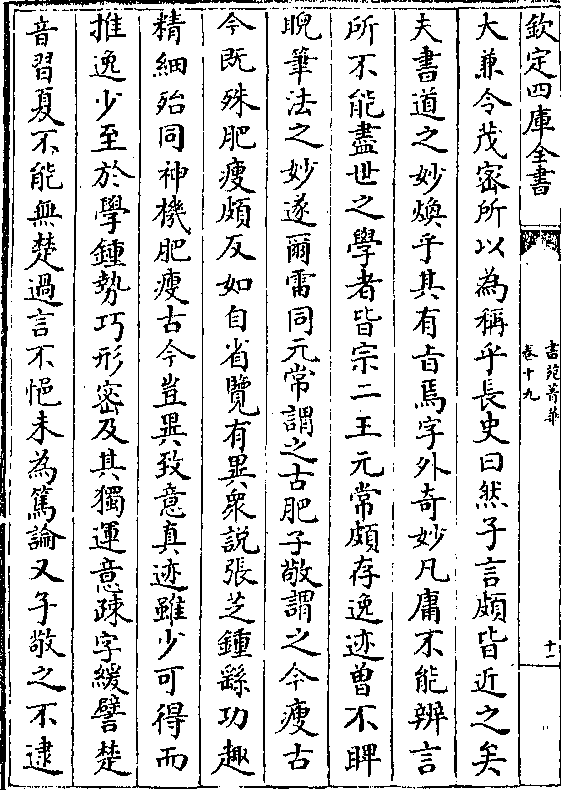 欽定四庫全書
書苑菁華
卷十九
十一
大兼令茂密所以為稱乎長史曰然子言頗皆近之矣
夫書道之妙煥乎其有㫖焉字外奇妙凡庸不能辨言
所不能盡世之學者皆宗二王元常頗存逸迹曽不睥
睨筆法之妙遂爾雷同元常謂之古肥子敬謂之今瘦古
今既殊肥瘦頗反如自省覽有異衆說張芝鍾繇功趣
精細殆同神機肥瘦古今豈異致意真迹雖少可得而
推逸少至於學鍾勢巧形密及其獨運意疎字緩譬楚
音習夏不能無楚過言不悒未為篤論又子敬之不逮